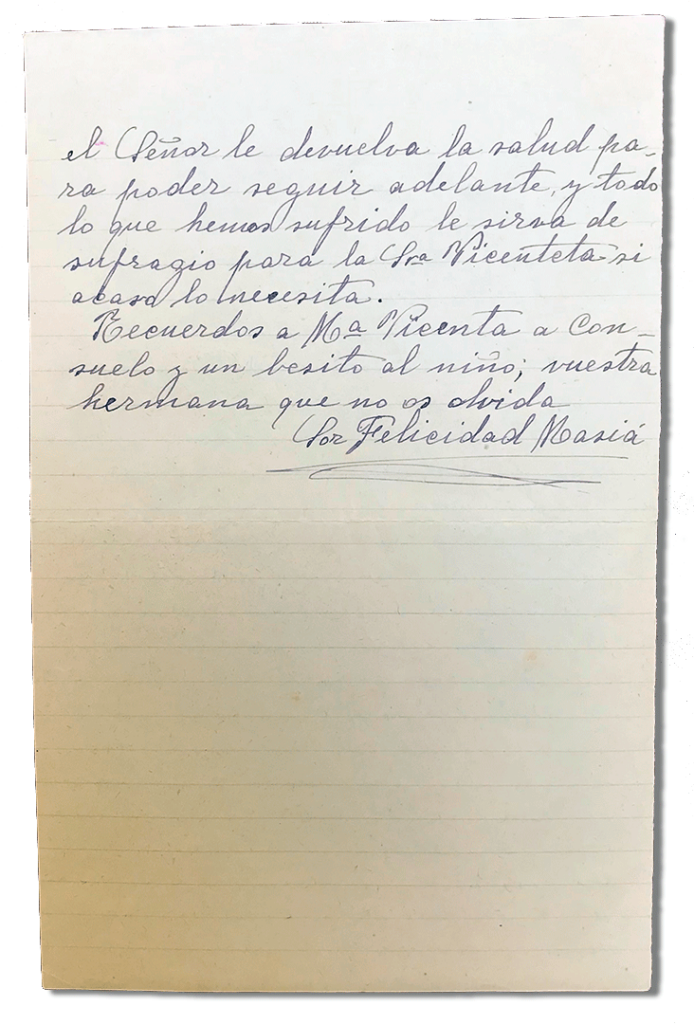 el Señor le devuelva la salud pa-
ra poder seguir adelante, y todo
lo que hemos sufrido le sirva de
sufragio para la Sra Vicenteta si
acaso lo necesita.
Recuerdos a Mª Vicenta a Con-
suelo y un besito al niño; vuestra
hermana que no os olvida
Sor Felicidad Masiá